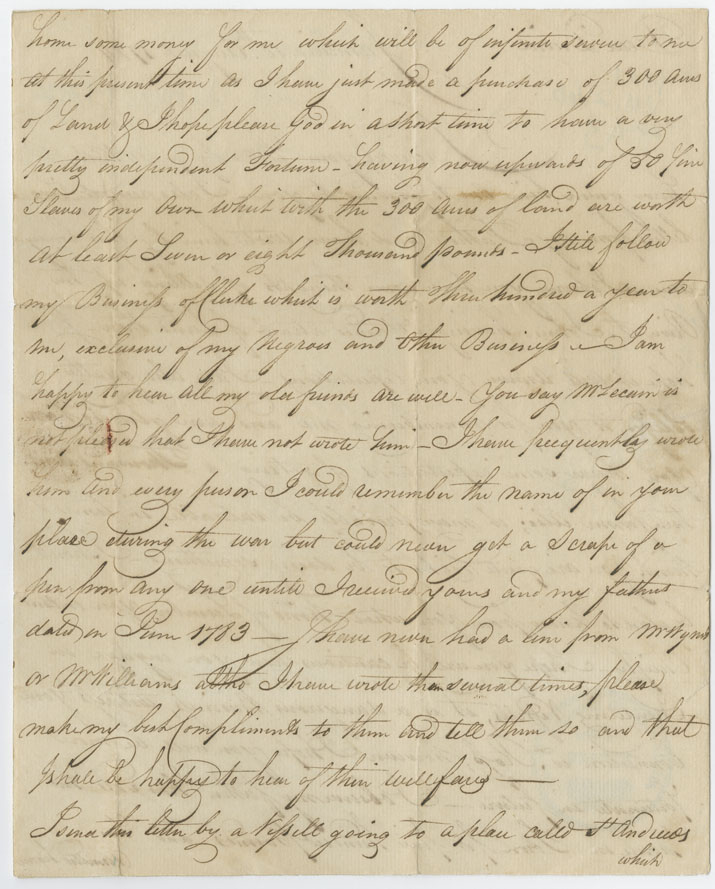 home some money for me which will be of infinite service to me
at this present time as I have just made a purchase of 300 Acres
of Land & I hope please God in a short time to have a very
pretty independent Fortune - having now upwards of 30 fine
Slaves of my own which with the 300 Acres of land are worth
at least Seven or eight Thousand pounds - I still follow
my Business of Clerke which is worth Three hundred a year to
me, exclusive of my Negroes and Other Business - I am
happy to hear all my old friends are well - You say Mr Lecain is
not pleased that I have not wrote him - I have frequently wrote
him and every person I could remember the name of in your
place during the war but could never get a Scrape of a
pen from any one untill I received yours and my fathers
dated in June 1783 — I have never had a line from
or Mr Williams altho I have wrote them several times, please
make my best Compliments to them and tell them so and that
I shall be happy to hear of their wellfare —
I send this letter by a Vessell going to a place called St Andrews
which